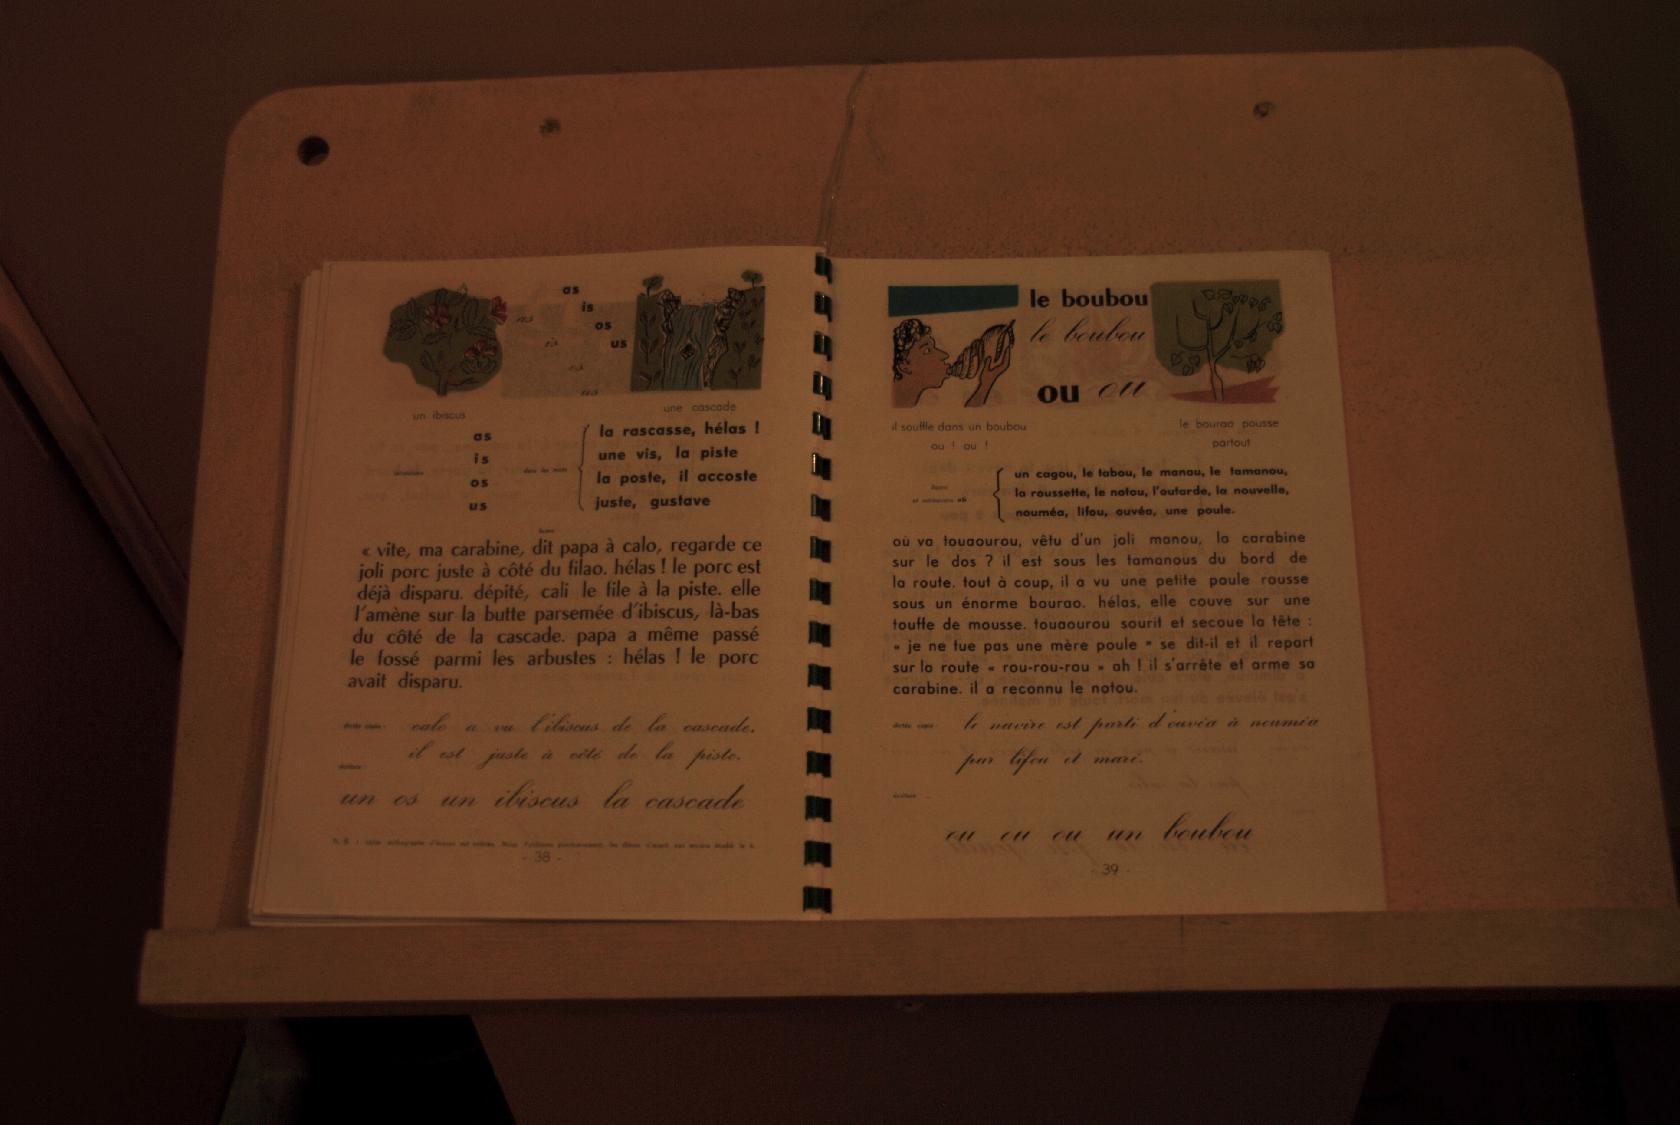 as
is
os
us
as
is
os
us
un ibiscus
une cascade
as
is
os
us
dans les mots
la rascasse, hélas !
une vis, la piste
la poste, il accoste
juste, gustave
« vite, ma carabine, dit papa à calo, regarde ce
joli porc juste à côté du filao. hélas ! le porc est
déjà disparu. dépité, cali le file à la piste. elle
l'amène sur la butte parsemée d'ibiscus, là-bas
du côté de la cascade. papa a même passé
le fossé parmi les arbustes : hélas ! le porc
avait disparu.
calo a vu l'ibiscus de la cascade.
il est juste à côté de la piste.
un os un ibiscus la cascade
- 38 -
le boubou
le boubou
ou ou
il souffle dans un boubou
ou ! ou !
le bourao pousse
partout
un cagou, le tabou, le manou, le tamanou,
la roussette, le notou, l'outarde, la nouvelle,
nouméa, lifou, ouvéa, une poule.
où va touaourou, vêtu d'un joli manou, la carabine
sur le dos ? il est sous les tamanous du bord de
la route. tout à coup, il a vu une petite poule rousse
sous un énorme bourao. hélas, elle couve sur une
touffe de mousse. touaourou sourit et secoue la tête :
« je ne tue pas une mère poule » se dit-il et il repart
sur la route « rou-rou-rou » ah ! il s'arrête et arme sa
carabine. il a reconnu le notou.
le navire est parti d'ouvéa à nouméa
par lifou et maré.
ou ou ou un boubou
- 39 -